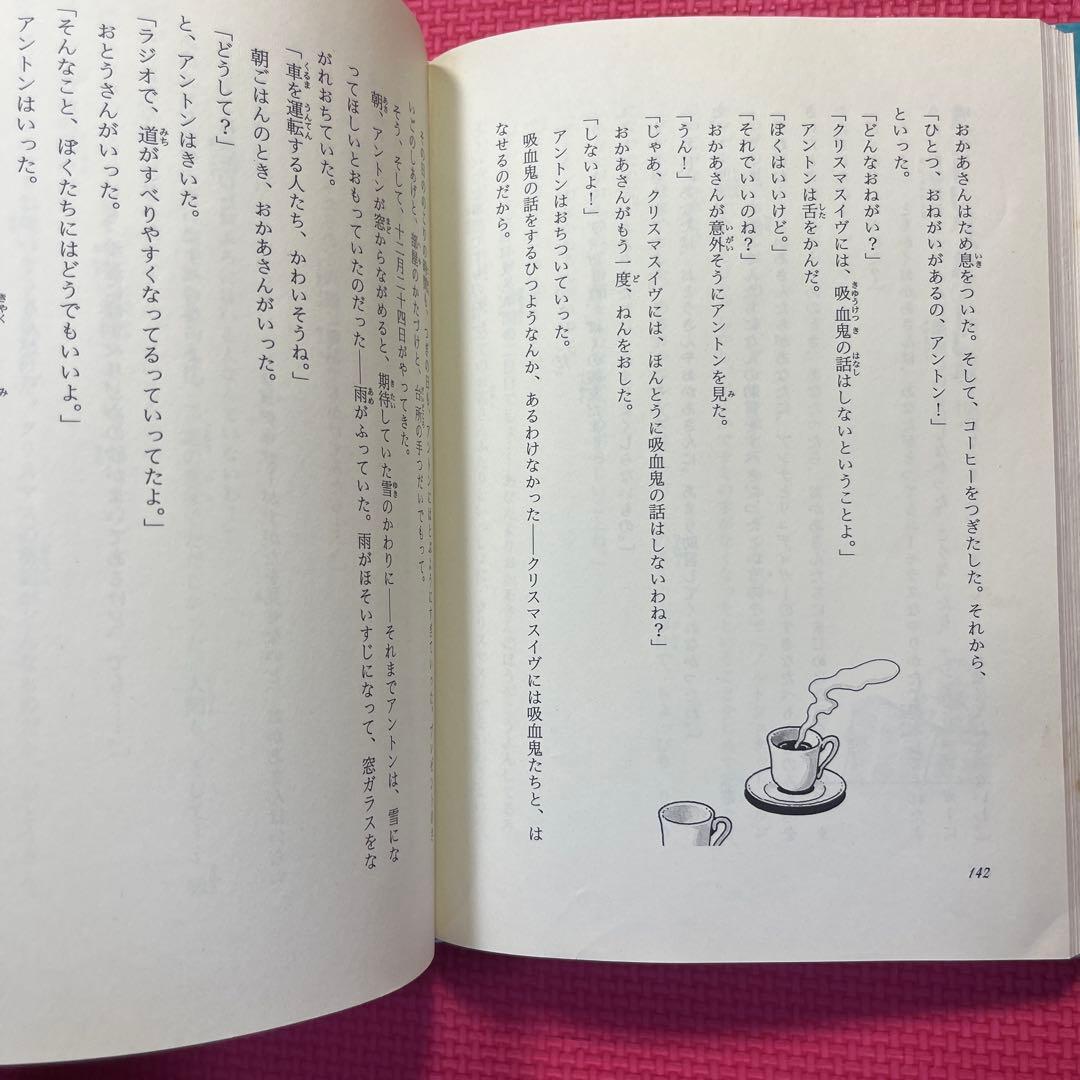 おかあさんはため息をついた。そして、コーヒーをつぎたした。それから、
「ひとつ、おねがいがあるの、アントン！」
といった。
「どんなおねがい？」
「クリスマスイヴには、吸血鬼の話はしないということよ。」
アントンは舌をかんだ。
「ぼくはいいけど。」
「それでいいのね？」
おかあさんが意外そうにアントンを見た。
「うん！」
「じゃあ、クリスマスイヴには、ほんとうに吸血鬼の話はしないわね？」
おかあさんがもう一度、ねんをおした。
「しないよ！」
アントンはおちついていった。
吸血鬼の話をするひつようなんか、あるわけなかった――クリスマスイヴには吸血鬼たちと、は
なせるのだから。
142
いどのしあげと、部屋のかたづけと、台所の手つだいでもって。
そう、そして、十二月二十四日がやってきた。
朝、アントンが窓からながめると、期待していた雪のかわりに――それまでアントンは、雪にな
ってほしいとおもっていたのだった――雨がふっていた。雨がほそいすじになって、窓ガラスをな
がれおちていた。
「車を運転する人たち、かわいそうね。」
朝ごはんのとき、おかあさんがいった。
「どうして？」
と、アントンはきいた。
「ラジオで、道がすべりやすくなってるっていってたよ。」
おとうさんがいった。
「そんなこと、ぼくたちにはどうでもいいよ。」
アントンはいった。